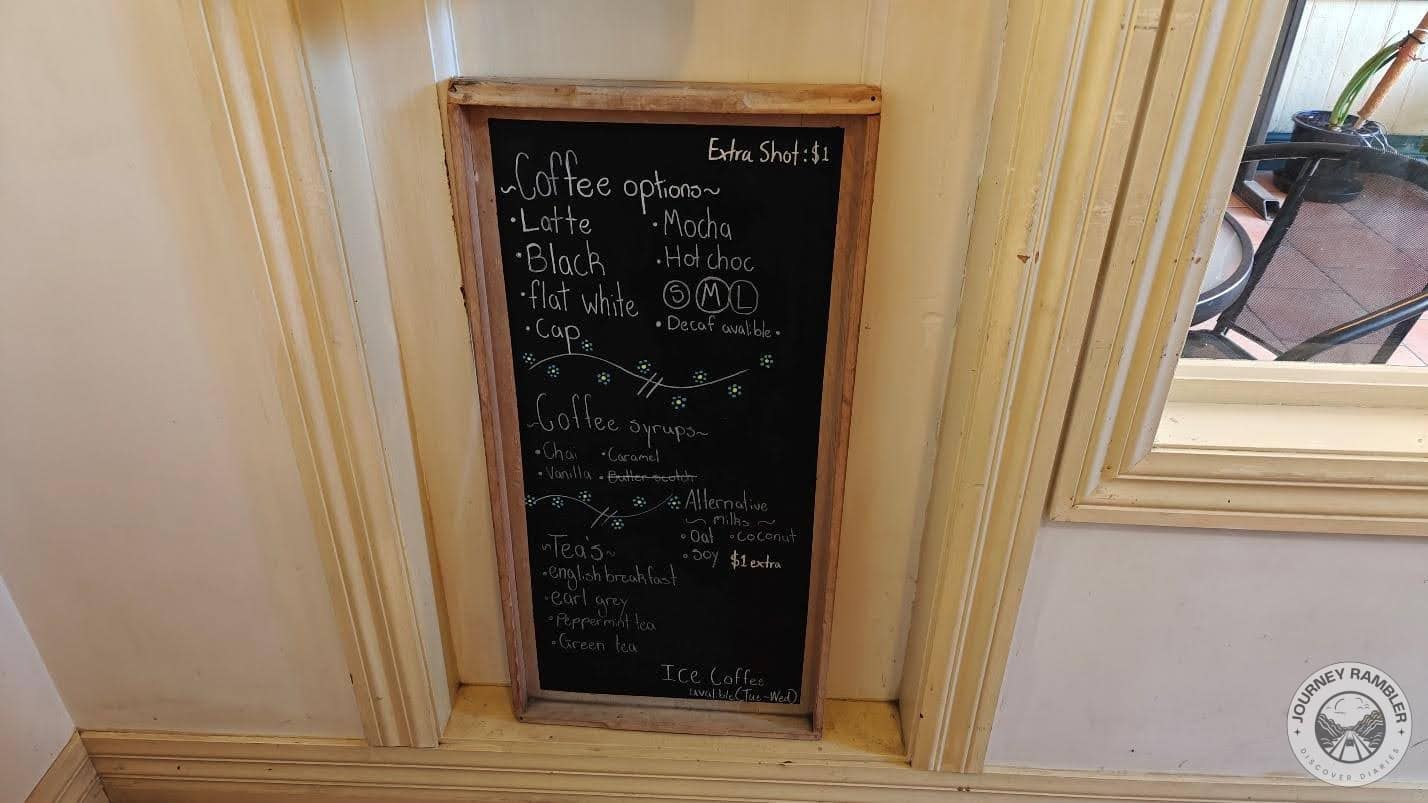 Extra Shot: $1
~Coffee options~
• Latte
• Black
• flat white
• Cap
• Mocha
• Hot choc
S M L
• Decaf avalible •
~Coffee syrups~
• Chai • Caramel
• Vanilla • Butter scotch
Alternative
~ milks ~
• Oat • coconut
• Soy $1 extra
~Tea's~
• english breakfast
• earl grey
• Peppermint tea
• Green tea
Ice Coffee
avalible (Tue-Wed)
JOURNEY RAMBLER
• DISCOVER DIARIES •